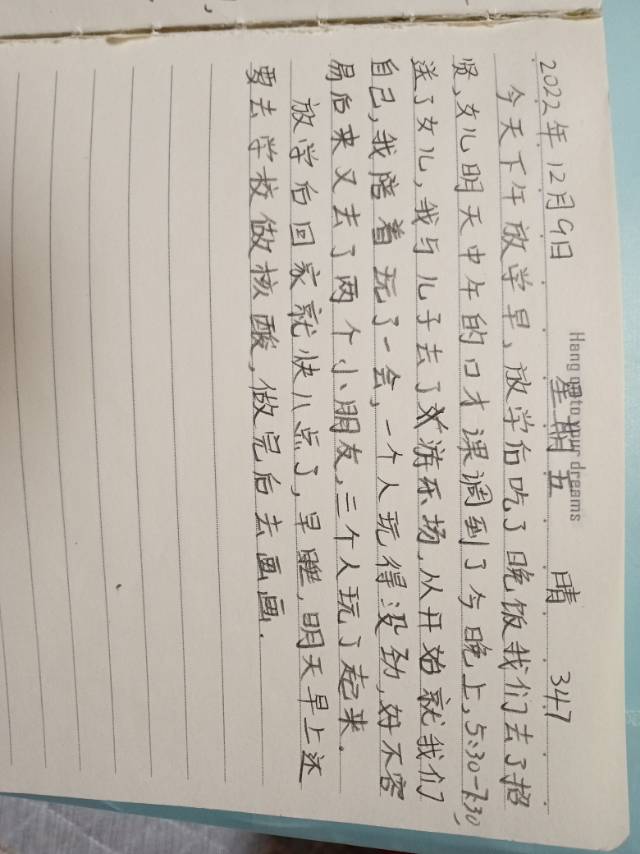 Hang on to your dreams
2022年12月9日 星期五 晴 347
今天下午放学早,放学后吃了晚饭我们去了招
贤,女儿明天中午的口才课调到了今晚上,5:30-7:30,
送了女儿,我与儿子去了游乐场,从开始就我们
自己,我陪着玩了一会,一个人玩得没劲,好不容
易后来又去了两个小朋友,三个人玩了起来.
放学后回家就快八点了,早睡,明天早上还
要去学校做核酸,做完后去画画.